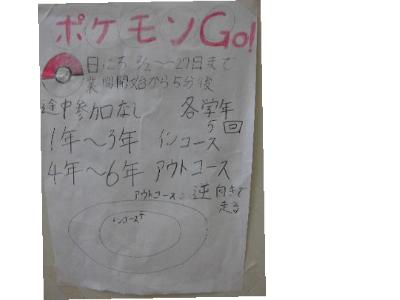 ポケモンGo!
日にち 2/2〜27日まで
業間開始から5分後
途中参加なし 各学年
5回
1年〜3年 インコース
4年〜6年 アウトコース
アウトコースは逆向きで
走る
インコース